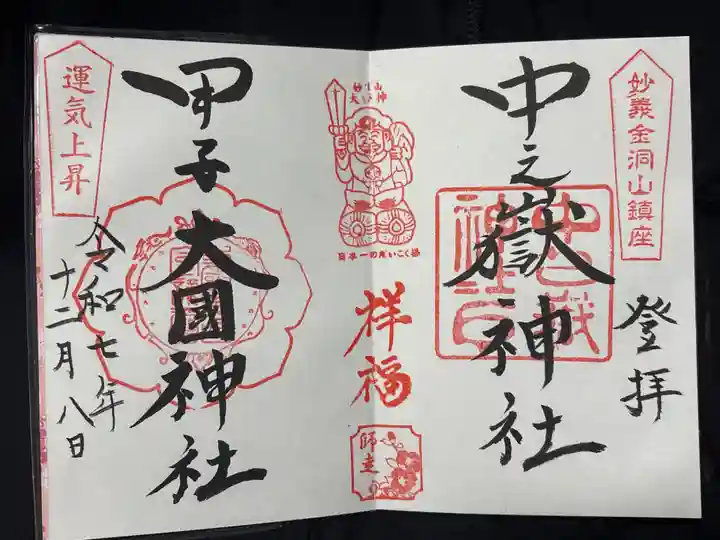 妙義金洞山鎮座
登拝
中之嶽神社
妙義山
大黒神
日本一のだいこく様
祥福
師走
甲子大國神社
運気上昇
令和七年
十二月八日